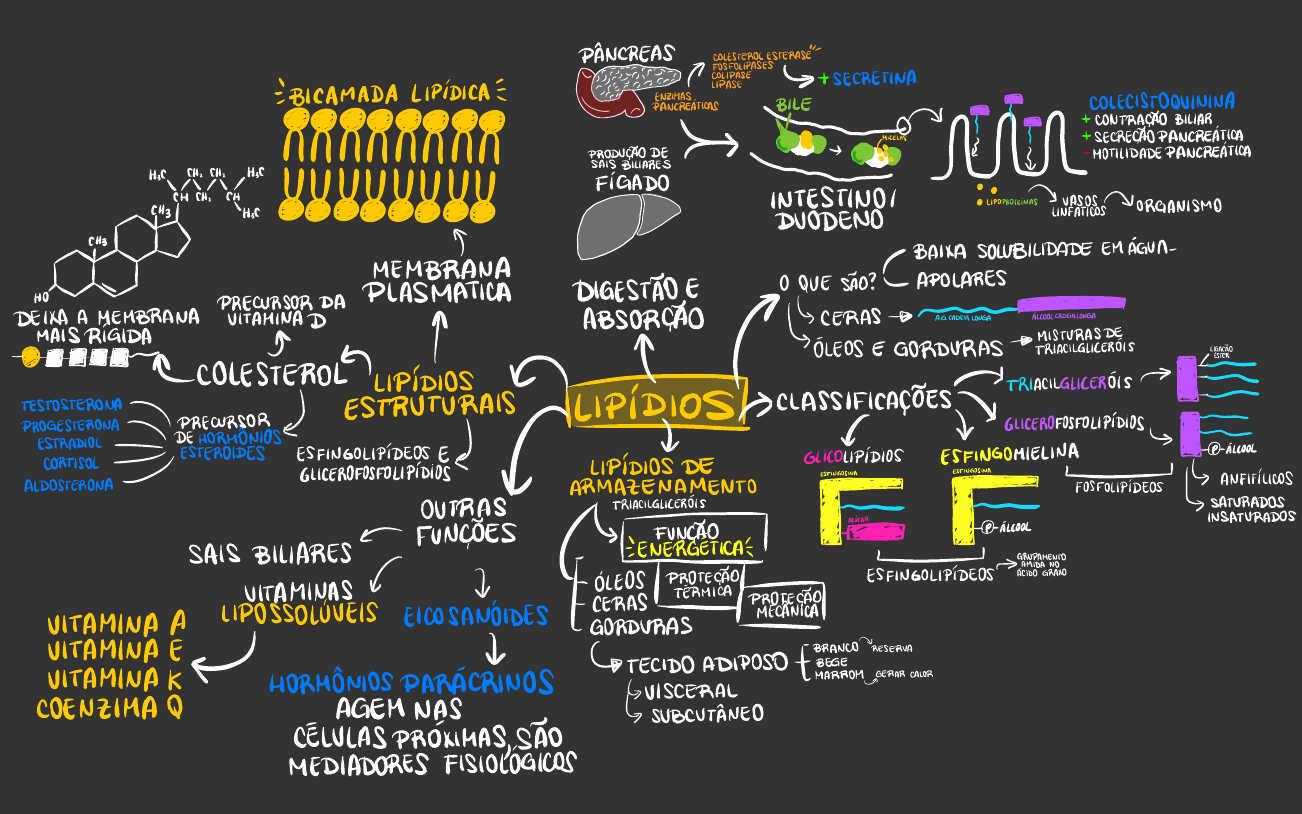 PÂNCREAS
COLESTEROL ESTERASE
FOSFOLIPASES
COLIPASE
LIPASE
+ SECRETINA
ENZIMAS
PANCREÁTICAS
BICAMADA LIPÍDICA
BILE
MICELAS
COLECISTOQUININA
+ CONTRAÇÃO BILIAR
+ SECREÇÃO PANCREÁTICA
- MOTILIDADE PANCREÁTICA
PRODUÇÃO DE
SAIS BILIARES
FÍGADO
INTESTINO/
DUODENO
LIPOPROTEÍNAS
VASOS
LINFÁTICOS
ORGANISMO
H₃C
CH₂
CH₂
H₃C
CH
CH₂
CH
CH₃
H₃C
CH₃
HO
MEMBRANA
PLASMATICA
DIGESTÃO E
ABSORÇÃO
O QUE SÃO?
BAIXA SOLUBILIDADE EM ÁGUA-
APOLARES
CERAS
A.G CADEIA LONGA
ÁLCOOL CADEIA LONGA
ÓLEOS E GORDURAS
MISTURAS DE
TRIACILGLICERÓIS
PRECURSOR DA
VITAMINA D
DEIXA A MEMBRANA
MAIS RÍGIDA
COLESTEROL
LIPÍDIOS
ESTRUTURAIS
LIPÍDIOS
CLASSIFICAÇÕES
TRIACILGLICERÓIS
LIGAÇÃO
ESTER
GLICEROFOSFOLIPÍDIOS
P -ÁLCOOL
TESTOSTERONA
PROGESTERONA
ESTRADIOL
CORTISOL
ALDOSTERONA
PRECURSOR
DE HORMÔNIOS
ESTERÓIDES
ESFINGOLIPÍDEOS E
GLICEROFOSFOLIPÍDIOS
GLICOLIPÍDIOS
ESFINGOSINA
AÇÚCAR
ESFINGOMIELINA
ESFINGOSINA
P -ÁLCOOL
FOSFOLIPÍDEOS
ANFIFÍLICOS
SATURADOS
INSATURADOS
ESFINGOLIPÍDEOS
GRUPAMENTO
AMIDA NO
ÁCIDO GRAXO
LIPÍDIOS DE
ARMAZENAMENTO
TRIACILGLICERÓIS
FUNÇÃO
ENERGÉTICA
PROTEÇÃO
TÉRMICA
PROTEÇÃO
MECÂNICA
ÓLEOS
CERAS
GORDURAS
TECIDO ADIPOSO
BRANCO
RESERVA
BEGE
MARROM
GERAR CALOR
VISCERAL
SUBCUTÂNEO
OUTRAS
FUNÇÕES
SAIS BILIARES
VITAMINAS
LIPOSSOLÚVEIS
VITAMINA A
VITAMINA E
VITAMINA K
COENZIMA Q
EICOSANÓIDES
HORMÔNIOS PARÁCRINOS
AGEM NAS
CÉLULAS PRÓXIMAS, SÃO
MEDIADORES FISIOLÓGICOS